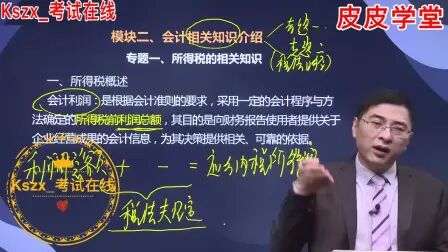 Kszx_考试在线
皮皮学堂
模块二、会计相关知识介绍
专题一、所得税的相关知识
一、所得税概述
会计利润：是根据会计准则的要求，采用一定的会计程序与方
法确定的所得税前利润总额，其目的是向财务报告使用者提供关于
企业经营成果的会计信息，为其决策提供相关、可靠的依据。
+ - = 应纳税所得
税法规定
Kszx_考试在线